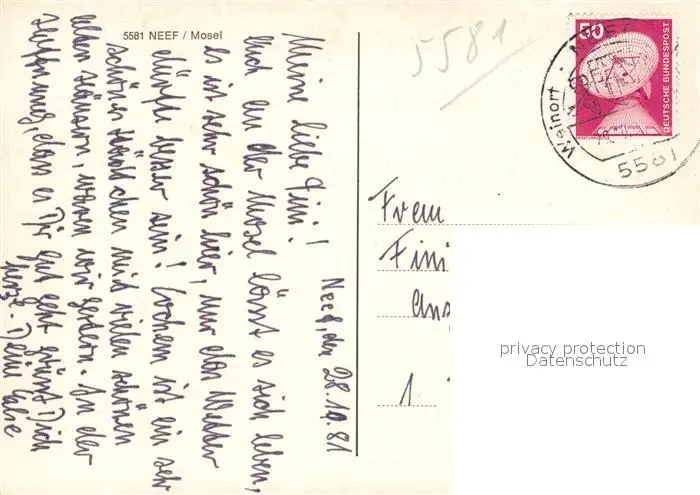 5581 NEEF / Mosel
Neef, den 28.10.81
Meine liebe Fini!
Auch an der Mosel lässt es sich leben,
es ist sehr schön hier, nur das Wetter
dürfte besser sein! Cochem ist ein sehr
schönes Städtchen mit vielen schönen
alten Häusern, waren wir gestern. In der
Hoffnung, dass es Dir gut geht grüsst Dich
herzl. Deine
5581
50
DEUTSCHE BUNDESPOST
Weinort NEEF
5581
Frem
Fini
Ans
1
privacy protection
Datenschutz